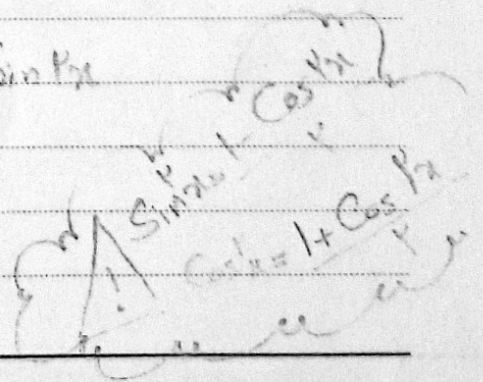 Sin ۲x
Sin²x = 1 - Cos ۲x / ۲
Cos²x = 1 + Cos ۲x / ۲
!